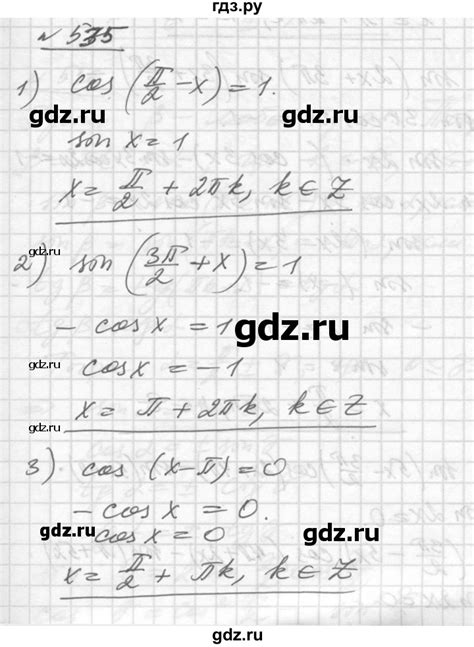 гдз.ру
№ 535
1) cos (π/2 − x) = 1.
gdz.ru gdz.ru
sin x = 1
x = π/2 + 2πk, k ∈ Z
gdz.ru
2) sin (3π/2 + x) = 1
gdz.ru
− cos x = 1
gdz.ru
cos x = −1
x = π + 2πk, k ∈ Z
3) cos (x − π) = 0
− cos x = 0.
gdz.ru gdz.ru
cos x = 0
x = π/2 + πk, k ∈ Z
gdz.ru